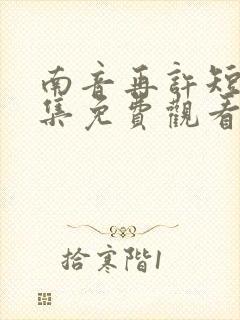 南音再許短
集免費觀看
拾寒階1